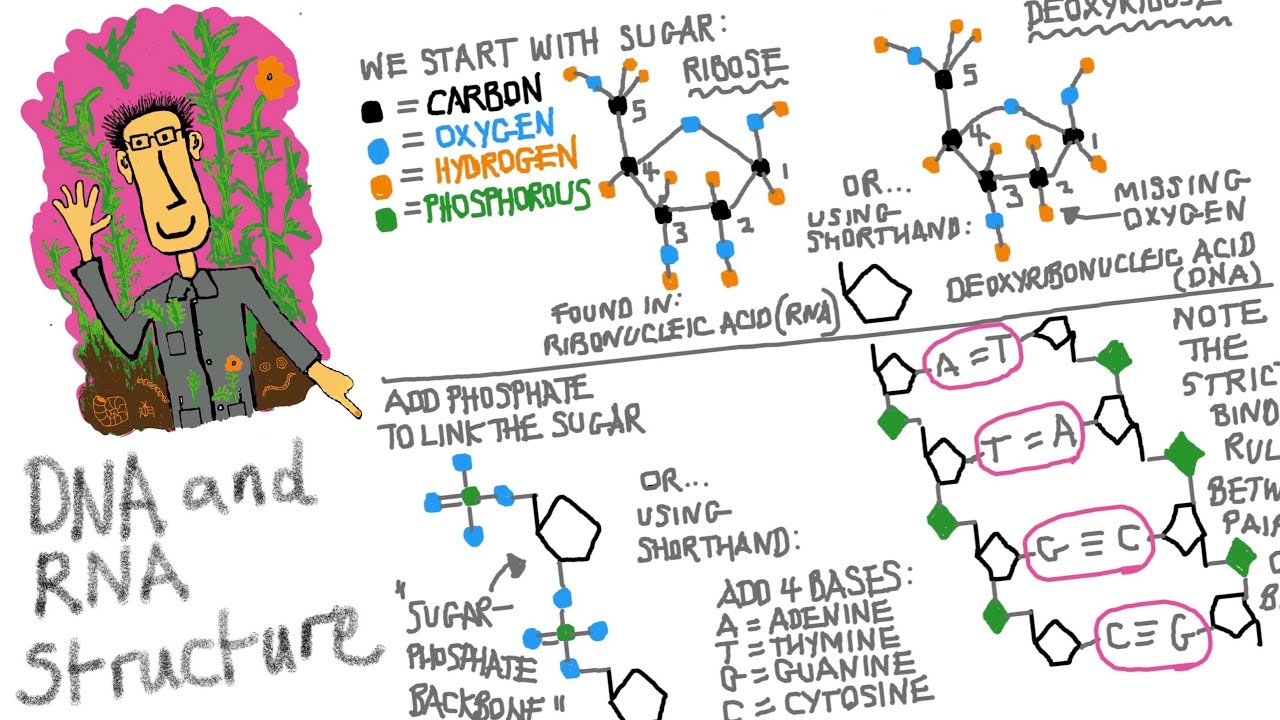 WE START WITH SUGAR:
= CARBON
= OXYGEN
= HYDROGEN
= PHOSPHOROUS
RIBOSE
5
4
1
3
2
FOUND IN:
RIBONUCLEIC ACID (RNA)
OR...
USING
SHORTHAND:
DEOXYRIBOSE
5
4
1
3
2
MISSING
OXYGEN
DEOXYRIBONUCLEIC ACID
(DNA)
DNA and
RNA
Structure
ADD PHOSPHATE
TO LINK THE SUGAR
"SUGAR-
PHOSPHATE
BACKBONE"
OR...
USING
SHORTHAND:
ADD 4 BASES:
A = ADENINE
T = THYMINE
G = GUANINE
C = CYTOSINE
A = T
T = A
G ≡ C
C ≡ G
NOTE
THE